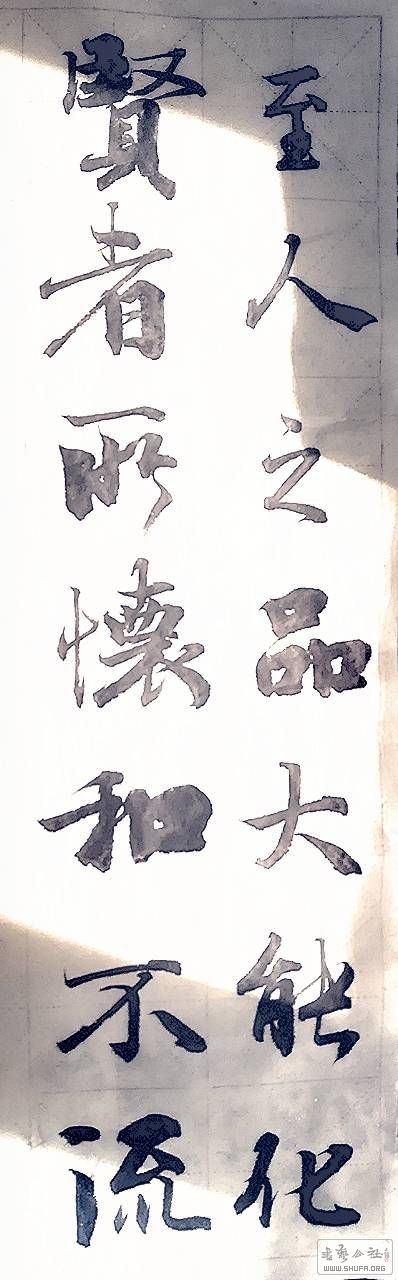 至人之品大能化
賢者所懷和不流
WWW.SHUFA.ORG